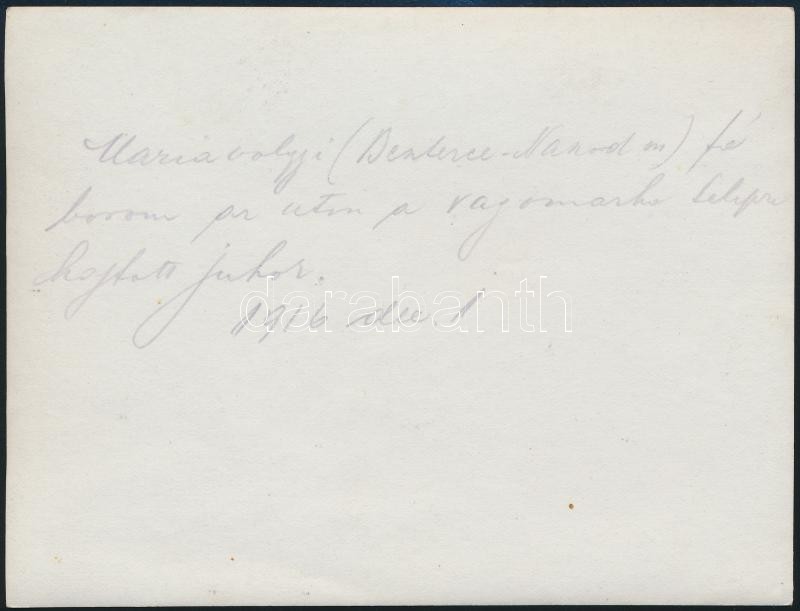 Mariavolgyi (Beszterce-Naszod m) fé
borom az uton a vagomarha telepre
hajtott juhok.
1916 dec 1
darabanth